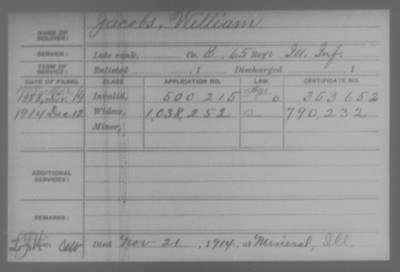 Jacobs, William
NAME OF SOLDIER:
SERVICE: Late rank, Co. B, 65 Reg't Ill. Inf.
TERM OF SERVICE: Enlisted , 1 Discharged , 1
DATE OF FILING. CLASS. APPLICATION NO. LAW. CERTIFICATE NO.
Nov. 19 Invalid, 500 215 353 652
1914 Dec. 12 Widow, 1,038,252 790,232
Minor,
ADDITIONAL SERVICES:
REMARKS:
Died Nov 21, 1914, at Mineral, Ill.